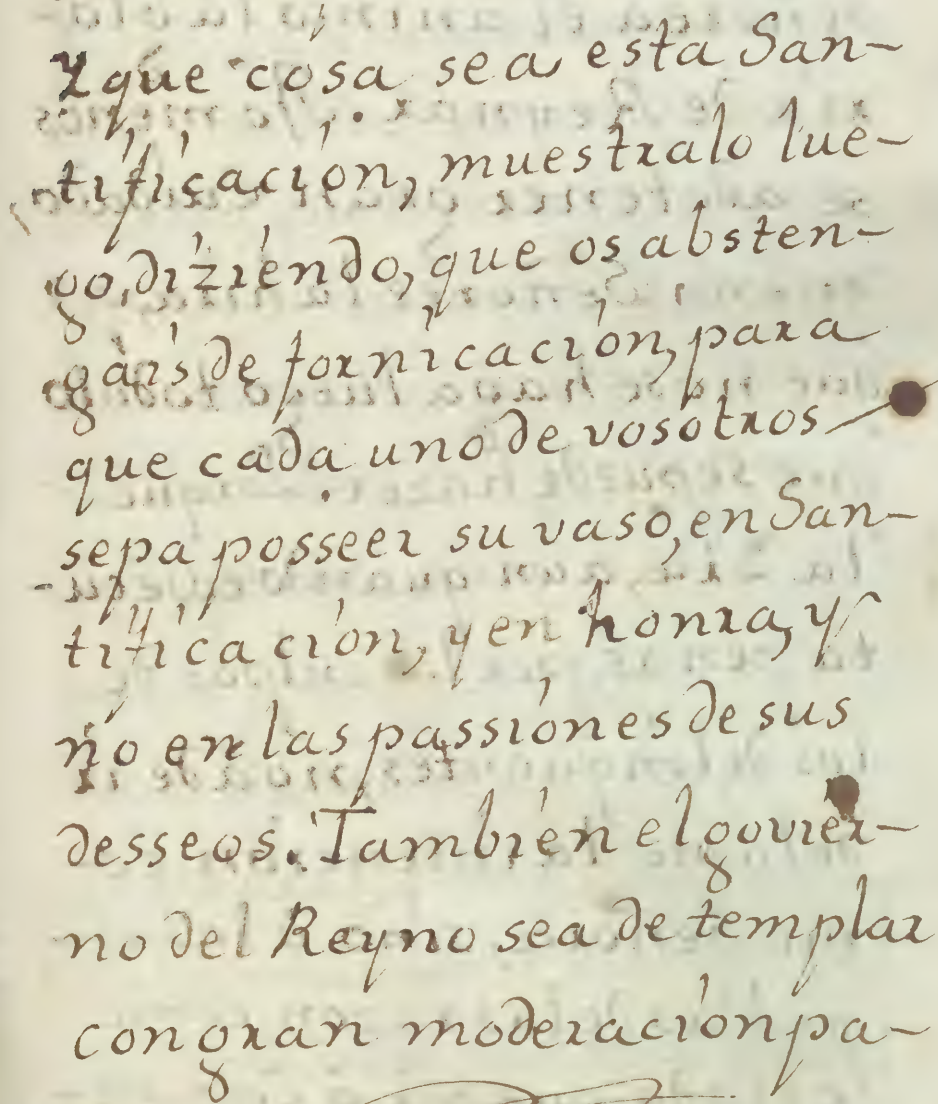 Y que cosa sea esta San-
tificación, muestralo lue-
go, diziendo, que os absten-
gais de fornicación, para
que cada uno de vosotros
sepa posseer su vaso, en San-
tificación, y en honra, y
no en las passiones de sus
desseos. Tambien el govier-
no del Reyno sea de templar
con gran moderación pa-